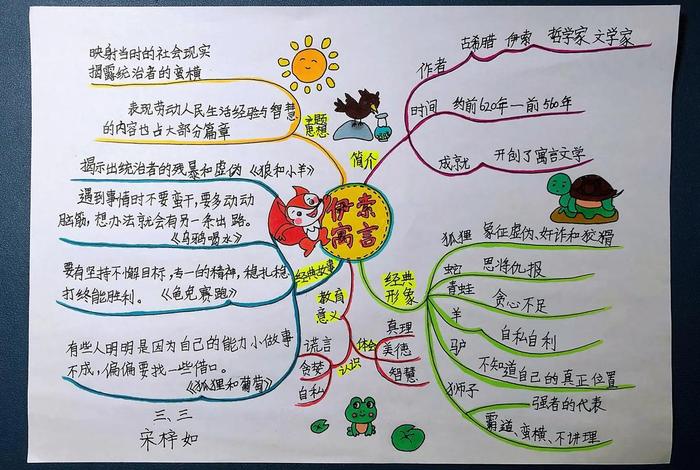 伊索
寓言
简介
作者
古希腊 伊索 哲学家 文学家
时间
约前620年—前560年
成就
开创了寓言文学
经典
形象
狐狸
象征虚伪、奸诈和狡猾
蛇
恩将仇报
青蛙
贪心不足
羊
自私自利
驴
不知道自己的真正位置
狮子
强者的代表
霸道、蛮横、不讲理
教育
意义
体会
真理
美德
智慧
认识
谎言
贪婪
自私
经典故事
揭示出统治者的残暴和虚伪《狼和小羊》
遇到事情时不要蛮干,要多动动
脑筋,想办法就会有另一条出路。
《乌鸦喝水》
要有坚持不懈目标,专一的精神,稳扎稳
打终能胜利。《龟兔赛跑》
有些人明明是因为自己的能力小做事
不成,偏偏要找一些借口。
《狐狸和葡萄》
主题
思想
映射当时的社会现实
揭露统治者的蛮横
表现劳动人民生活经验与智慧
的内容也占大部分篇章
三、三
宋梓如